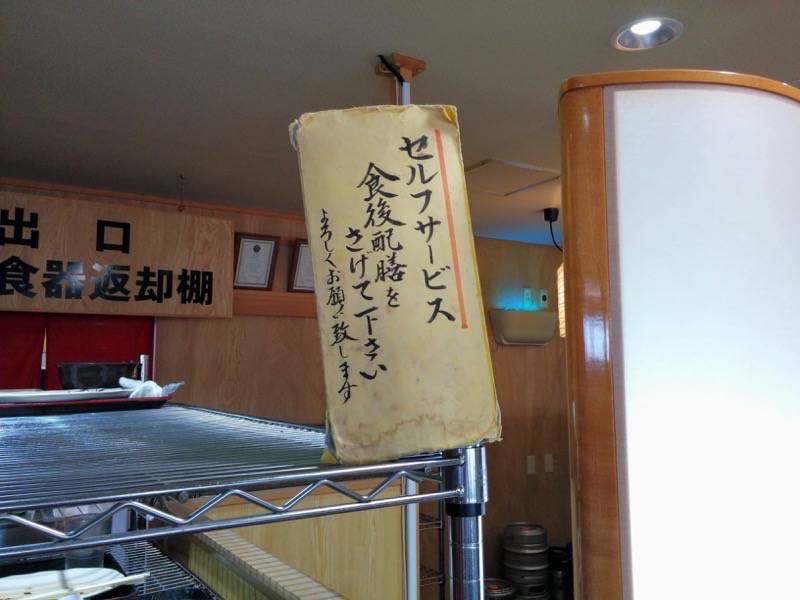 セルフサービス
食後配膳を
さげて下さい
よろしくお願い致します
出口
食器返却棚